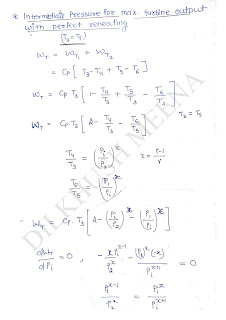 * Intermediate Pressure for max. turbine output
with perfect reheating
(T3 = T5)
WT = WT1 + WT2
= Cp [T3 - T4 + T5 - T6]
WT = Cp T3 [1 - T4/T3 + T5/T3 - T6/T3]
WT = Cp.T3 [2 - T4/T3 - T6/T3] T3 = T5
T4/T3 = (Pi/P2)^x x = γ-1/γ
T6/T5 = (P1/Pi)^x
WT = Cp.T3 [2 - (Pi/P2)^x - (P1/Pi)^x]
dWT/dPi = 0, - x Pi^x-1/P2^x - (P1)^x (-x)/Pi^x+1 = 0
Pi^x-1/P2^x = P1^x/Pi^x+1
DILKHUSH MEENA